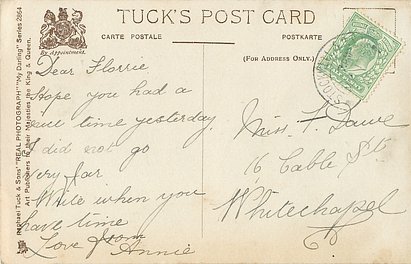 TUCK'S POST CARD
CARTE POSTALE
POSTKARTE
(FOR ADDRESS ONLY.)
By Appointment.
Raphael Tuck & Sons' "REAL PHOTOGRAPH" "My Darling" Series 2864
Art Publishers to their Majesties the King & Queen.
Dear Florrie
Hope you had a
nice time yesterday
I did not go
very far
Write when you
have time
Love from
Annie
Miss F. Dawe
16 Cable St
Whitechapel
E